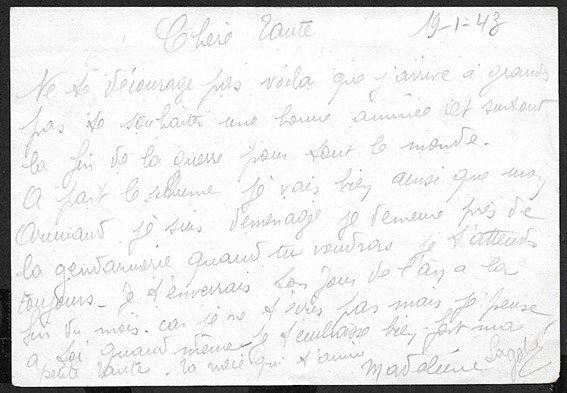 Chère Tante 19-1-43
Ne te décourage pas voila que j'arrive à grands
pas te souhaiter une bonne année et surtout
la fin de la guerre pour tout le monde.
A part le rhume je vais bien ainsi que mon
Armand je suis demenagé je demeure près de
la gendarmerie quand tu voudras je t'attends
toujours - Je t'enverrais ton Jour de l'An a la
fin du mois. car je ne t'écris pas mais je pense
a toi quand même - Je t'embrasse bien fort ma
petite Tante. Ta nièce qui t'aime
Madeleine